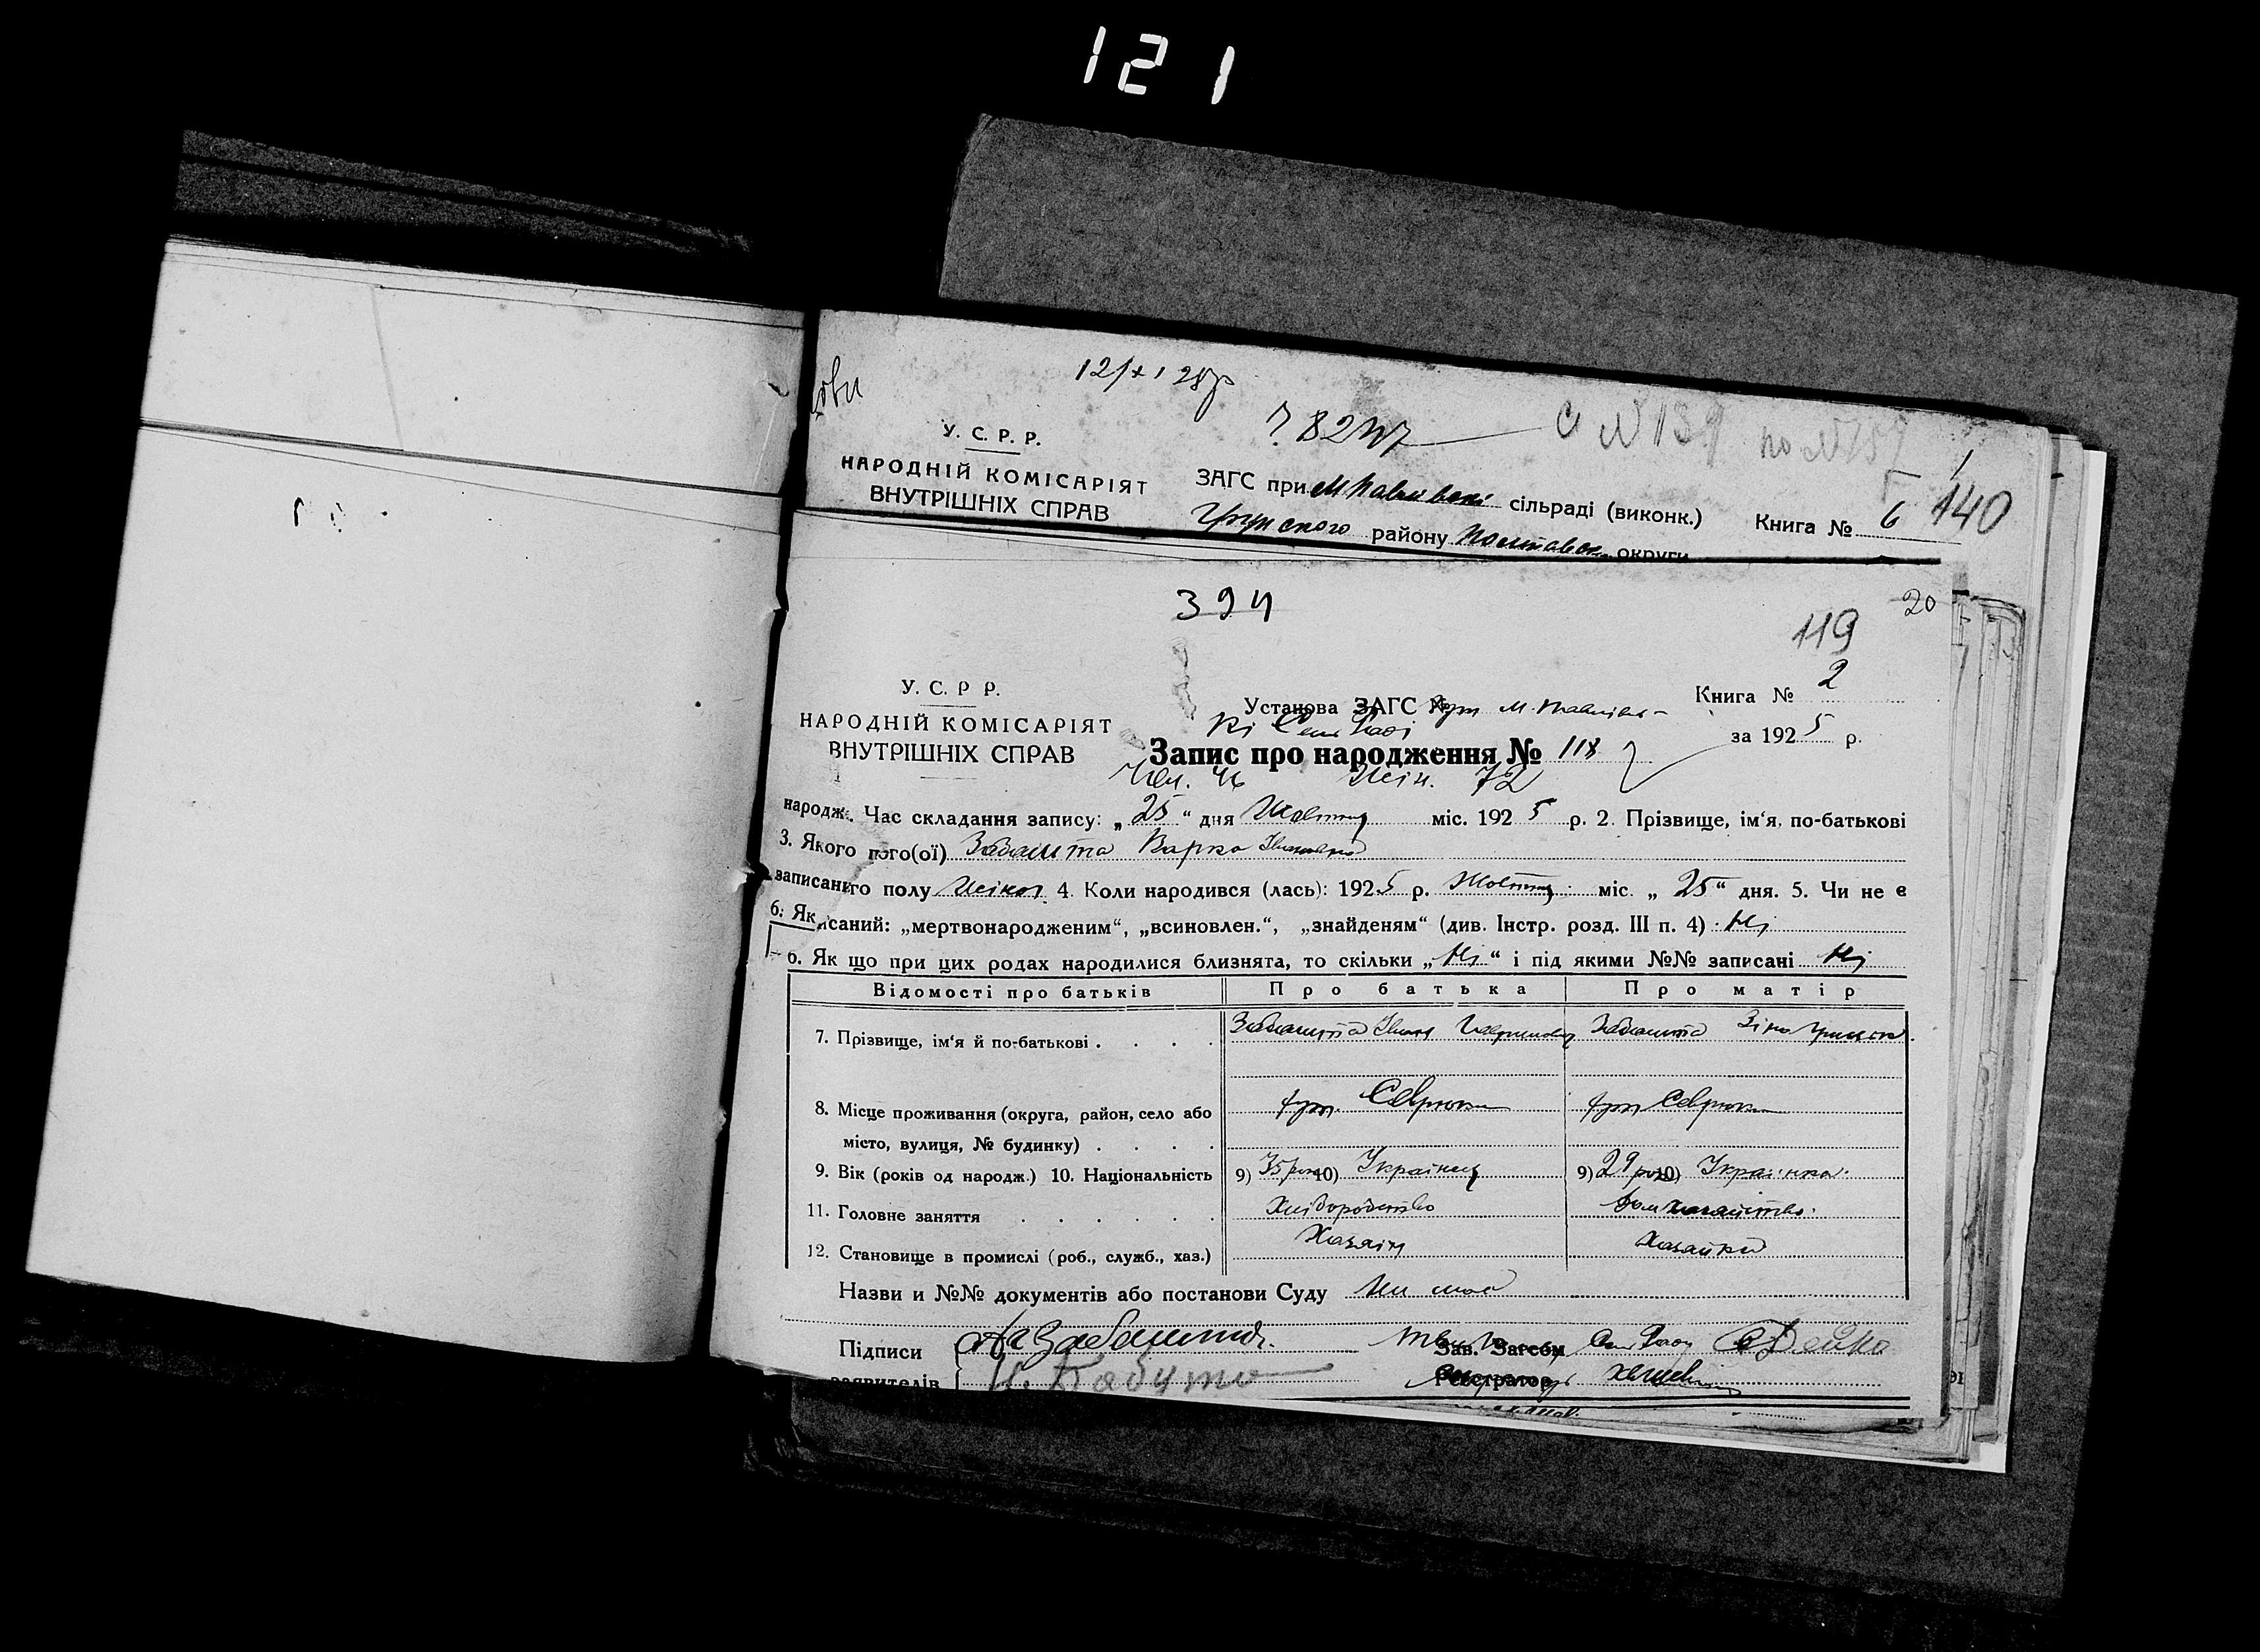 121
У. С. Р. Р.
НАРОДНІЙ КОМІСАРІЯТ
ВНУТРІШНІХ СПРАВ
с №139 по №157
ЗАГС при сільраді (виконк.) Книга № 6 140
району Полтавськ округи
394
20
119
У. С. Р Р.
НАРОДНІЙ КОМІСАРІЯТ
ВНУТРІШНІХ СПРАВ
Установа ЗАГС № при М. Павлівсь-
кі Сельраді
Книга № 2
за 1925 р.
Запис про народження № 118
Чол. 46 Жін. 72
народж. Час складання запису: „25“ дня Жовтня міс. 1925 р. 2. Прізвище, ім‘я, по-батькові
3. Якого ного(ої) Забашта Варка Івановна
записаного полу Жіноч. 4. Коли народився (лась): 1925 р. Жовтня міс. „25“ дня. 5. Чи не є
6. Як исаний: „мертвонародженим“, „всиновлен.“, „знайденям“ (див. Інстр. розд. III п. 4) Ні
6. Як що при цих родах народилися близнята, то скільки „Ні“ і під якими №№ записані Ні
Відомості про батьків Про батька Про матір
7. Прізвище, ім‘я й по-батькові . . . . Забашта Іван Забашта Зінa
8. Місце проживання (округа, район, село або хут. Севрюки хут Севрюки
місто, вулиця, № будинку) . . . .
9. Вік (років од народж.) 10. Національність 9) 35 рок 10) Українець 9) 29 рок 10) Українка
11. Головне заняття . . . . . . Хліборобство дом хазяйство.
12. Становище в промислі (роб., служб., хаз.) Хазяїн Хазяйка
Назви и №№ документів або постанови Суду
Підписи Забашта. Зав. Загсом Сельради Дейка
заявителів Реєстратор